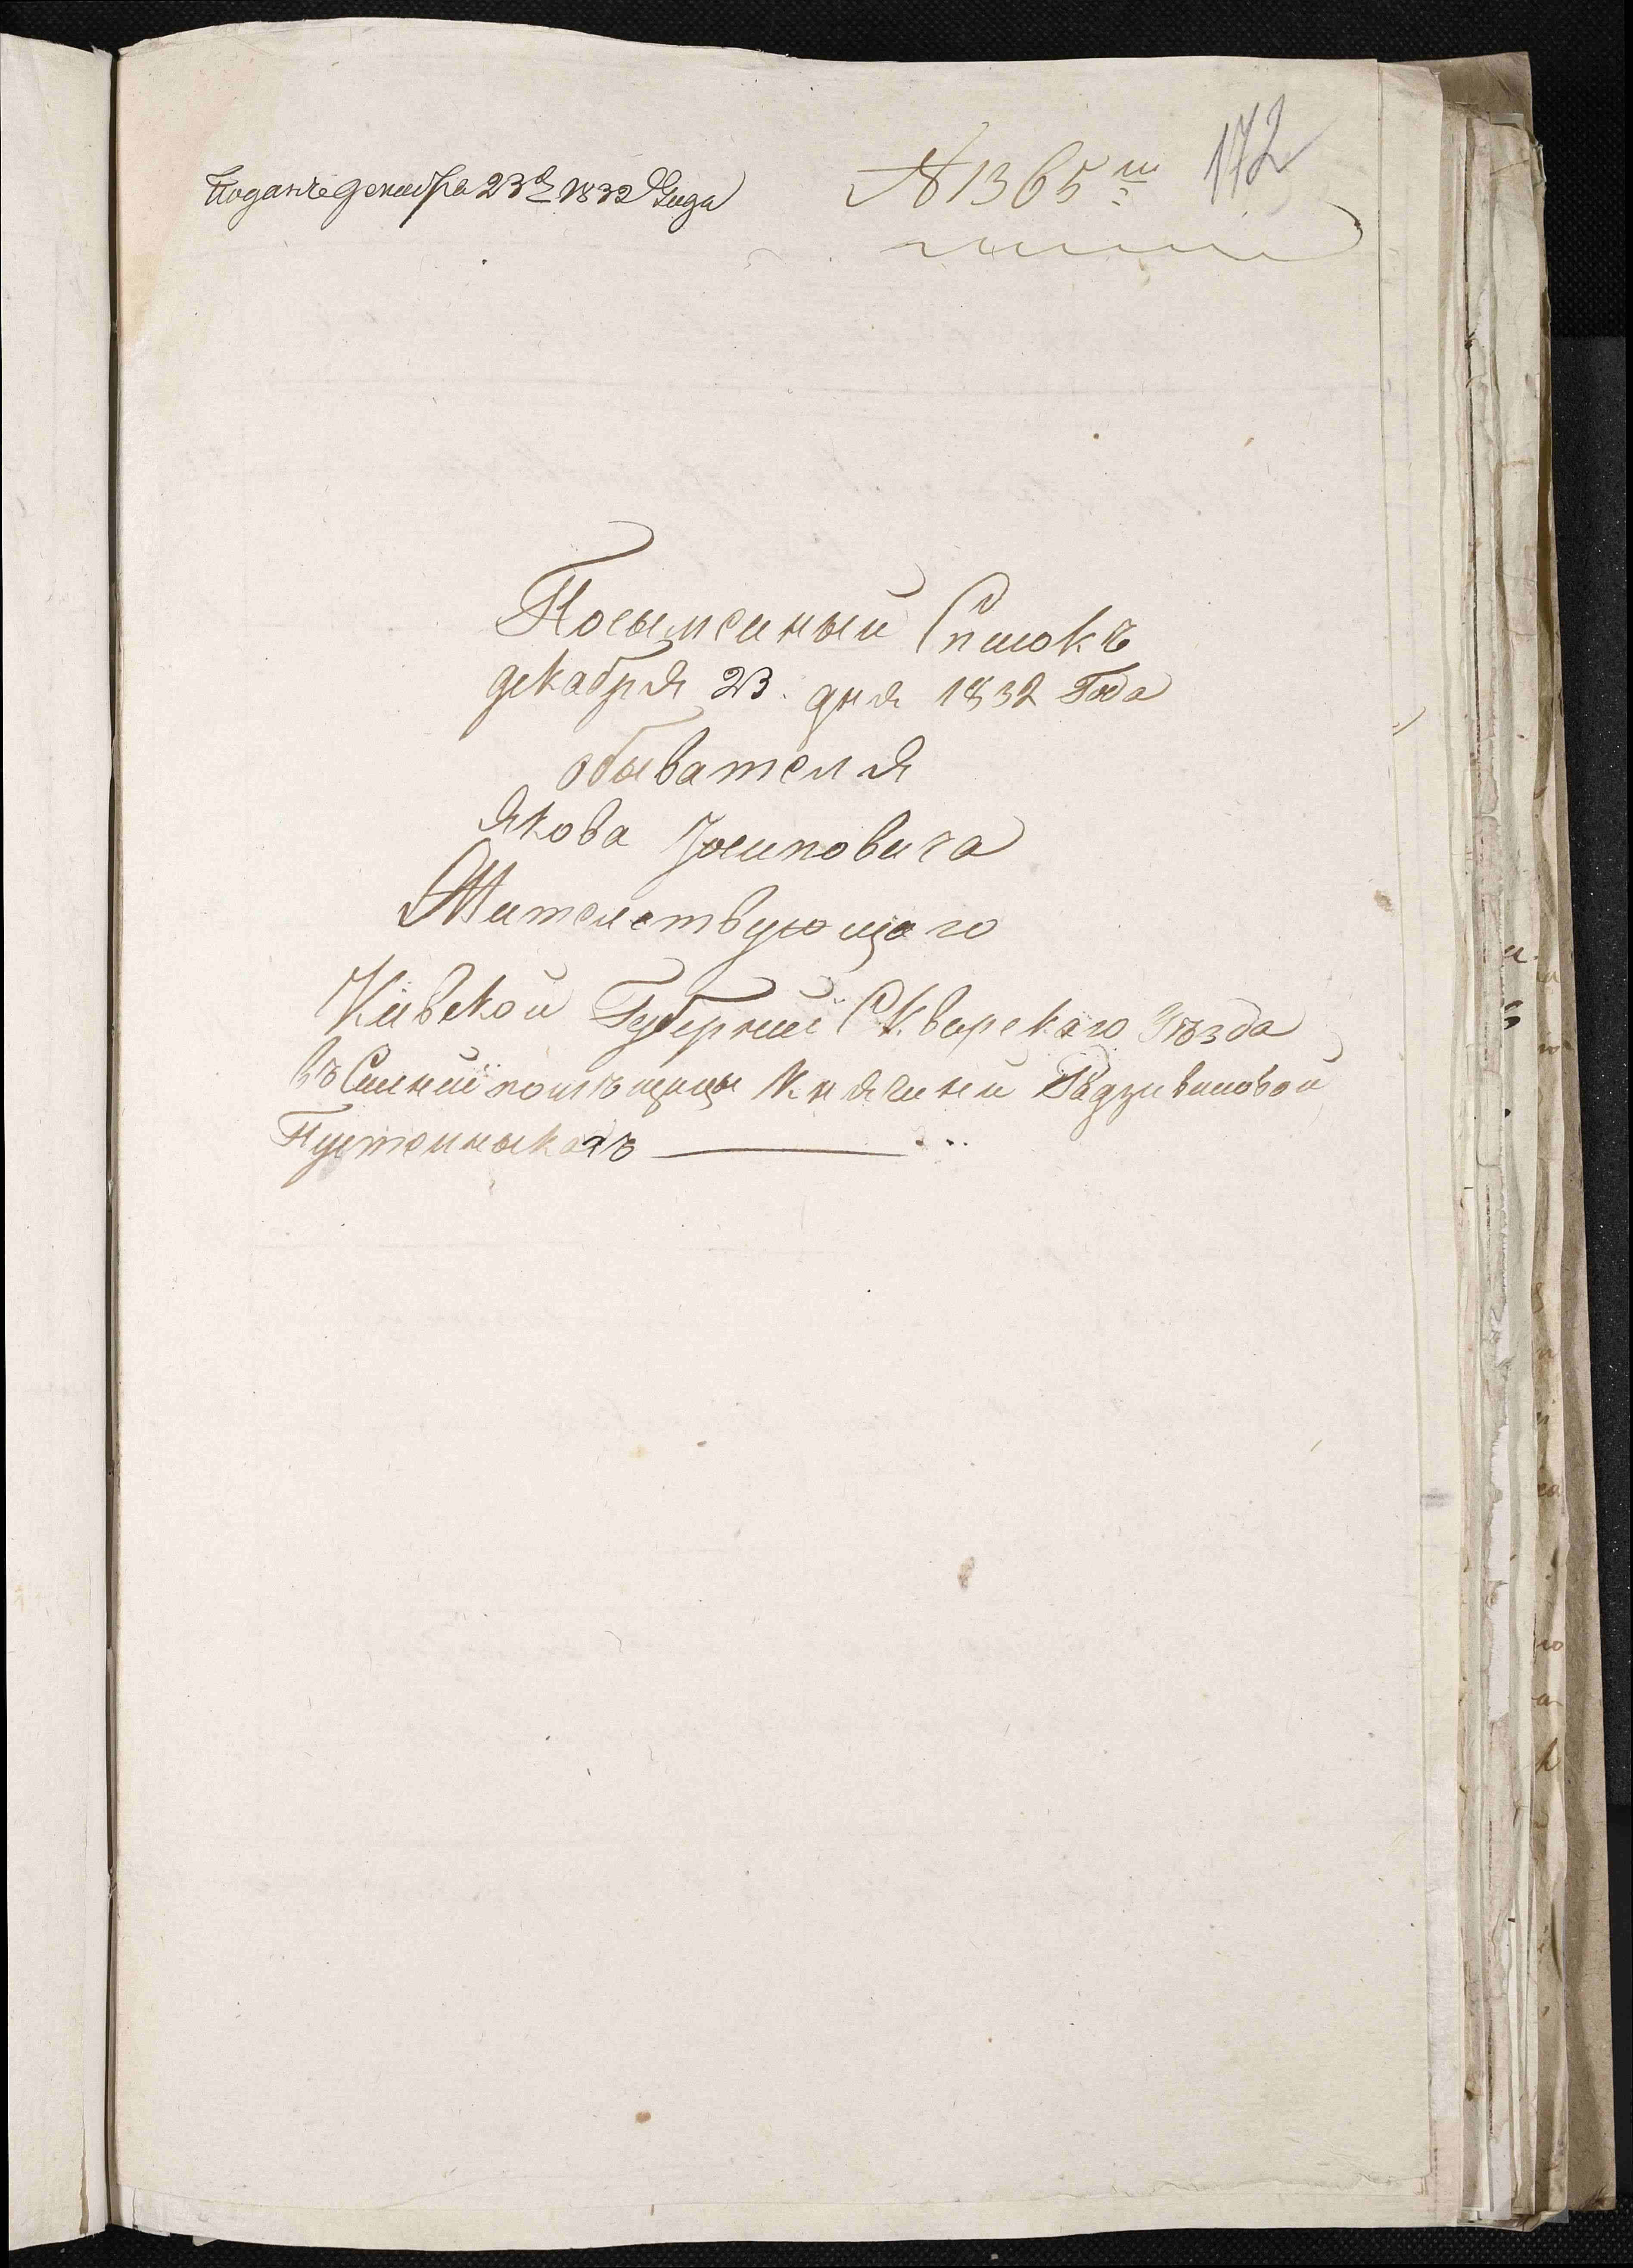 Поданъ декабря 23го 1832 Года
№ 1365й
172
Посемейный Списокъ
декабря 23. дня 1832 Года
обывателя
Якова Iосиповича
Жителствующаго
Кiивской Губернiи Сквирскаго Уѣзда
въ Имѣнiи помѣщицы Княгини Радзивиловой